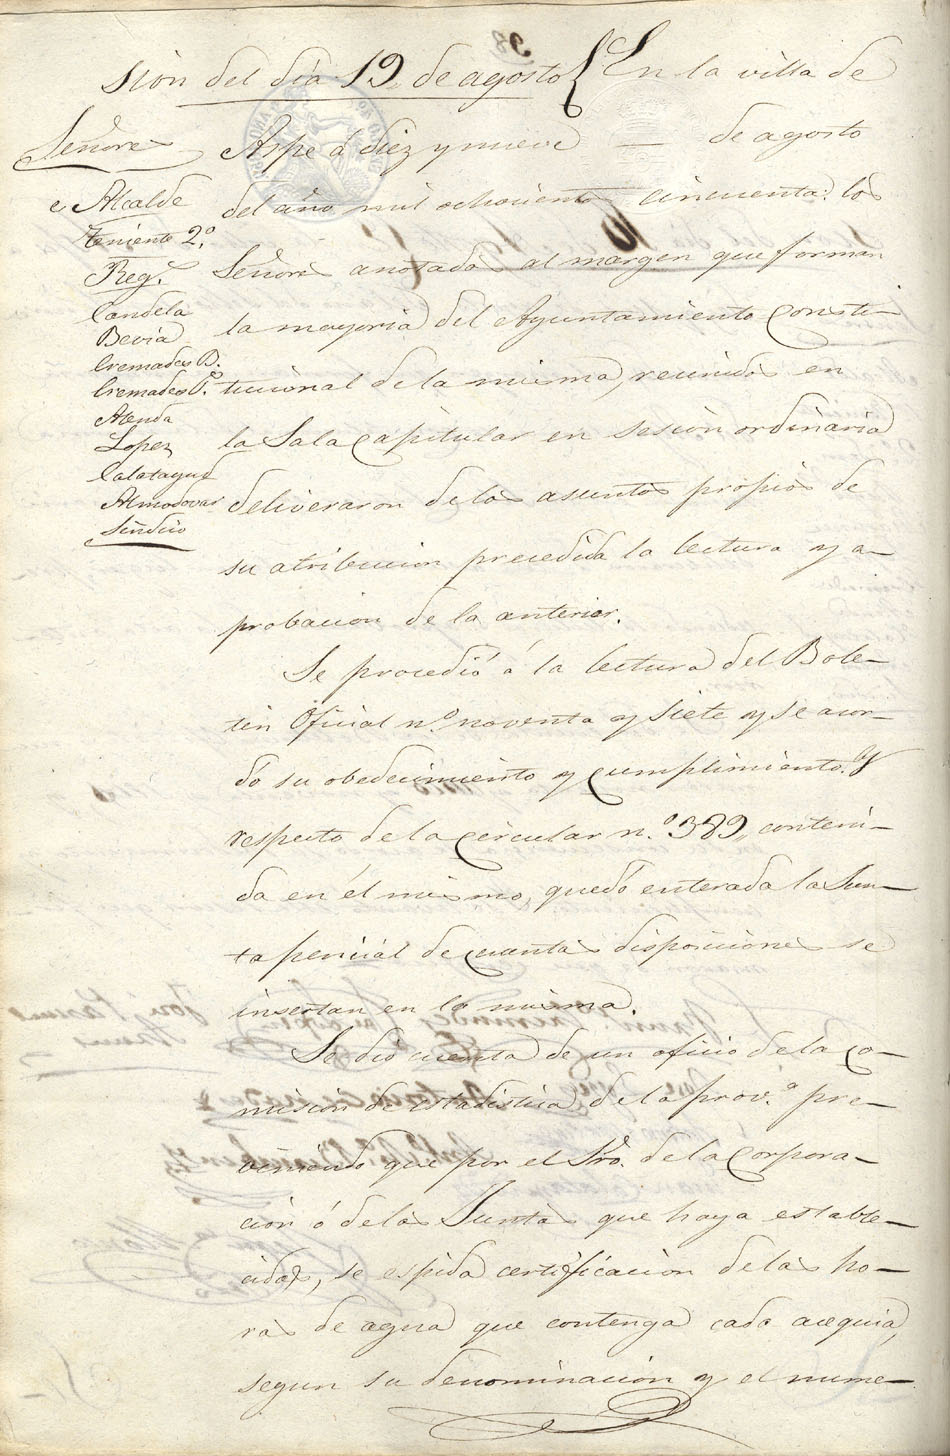 sion del dia 19 de agosto { En la villa de
Señores
e Alcalde
teniente 2.º
Reg.s
Candela
Bevia
Cremades B.
Cremades P.e
Atenda
Lopez
Calatayud
Almodovar
Sindico
Aspe á diez y nueve — de agosto
del año mil ochocientos cincuenta: los
Señores anotados al margen que forman
la mayoria del Ayuntamiento Consti-
tucional de la misma, reunidos en
la Sala Capitular en sesion ordinaria
deliveraron de los asuntos propios de
su atribucion precedida la lectura y a-
probacion de la anterior.
Se procedió á la lectura del Bole-
tin Oficial n.º noventa y siete y se acor-
dó su obedecimiento y cumplimiento. Y
respecto de la circular n.º 389, conteni-
da en él mismo, quedó enterada la Jun-
ta pericial de cuantas disposiciones se
insertan en la misma.
Se dió cuenta de un oficio de la Co-
mision de estadistica de la prov.a pre-
viniendo que por el Srio. de la Corpora-
cion ó de las Juntas que haya estable-
cidas, se espida certificacion de las ho-
ras de agua que contenga cada acequia,
segun su denominacion y el nume-